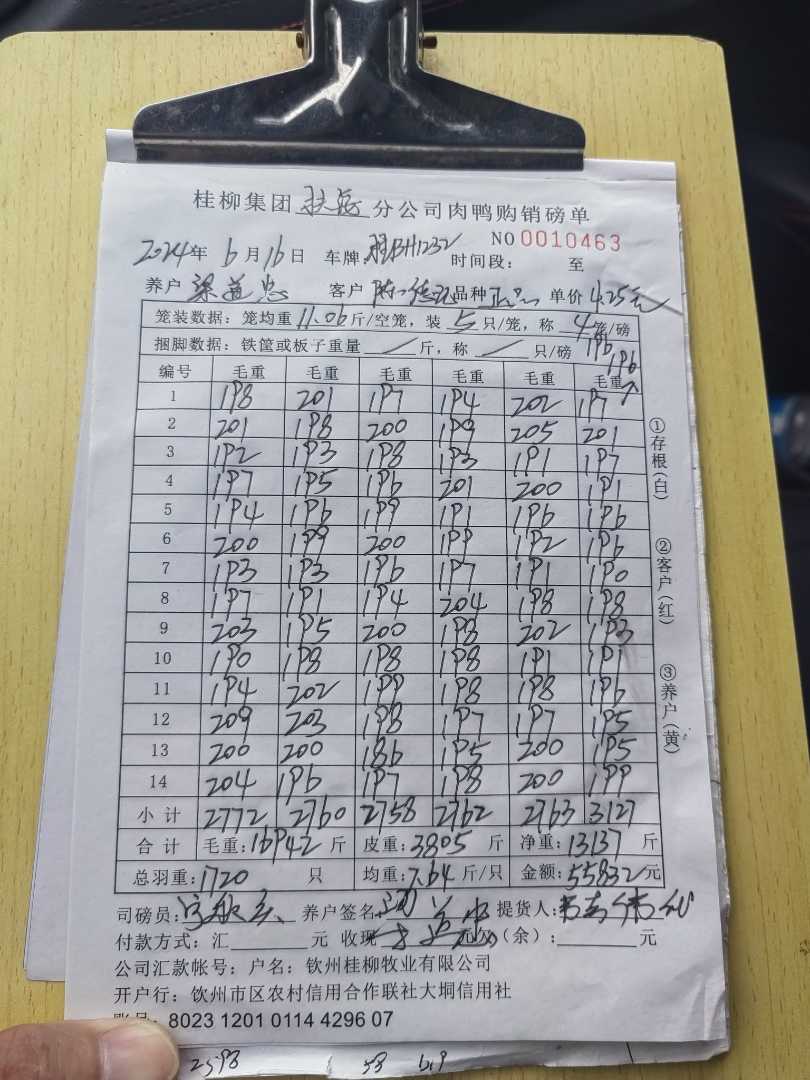 桂柳集团 扶绥 分公司肉鸭购销磅单
NO 0010463
2024年 6月16日 车牌: 桂BH1232 时间段: 至
养户 梁道忠 客户 品种 单价 4.25元
笼装数据: 笼均重 11.06 斤/空笼, 装 5 只/笼, 称 4 笼/磅
捆脚数据: 铁筐或板子重量 / 斤, 称 / 只/磅 196
196
编号 毛重 毛重 毛重 毛重 毛重 毛重
1 198 201 197 194 202 197
2 201 198 200 199 205 201
3 192 193 198 193 191 197
4 197 195 196 201 200 191
5 194 196 199 191 196 196
6 200 199 200 199 192 196
7 193 193 196 197 191 190
8 197 191 194 204 198 198
9 203 195 200 198 202 193
10 190 198 198 198 191 191
11 194 202 199 198 198 196
12 209 203 198 197 197 195
13 200 200 186 195 200 195
14 204 196 197 198 200 199
小计 2772 2760 2758 2762 2763 3127
合计 毛重: 16942 斤 皮重: 3805 斤 净重: 13137 斤
总羽重: 1720 只 均重: 7.64 斤/只 金额: 55832 元
①存根(白)
②客户(红)
③养户(黄)
司磅员: 养户签名: 提货人:
付款方式: 汇 元 收现 元 (余): 元
公司汇款帐号: 户名: 钦州桂柳牧业有限公司
开户行: 钦州市区农村信用合作联社大垌信用社
账号: 8023 1201 0114 4296 07
2598 58 619